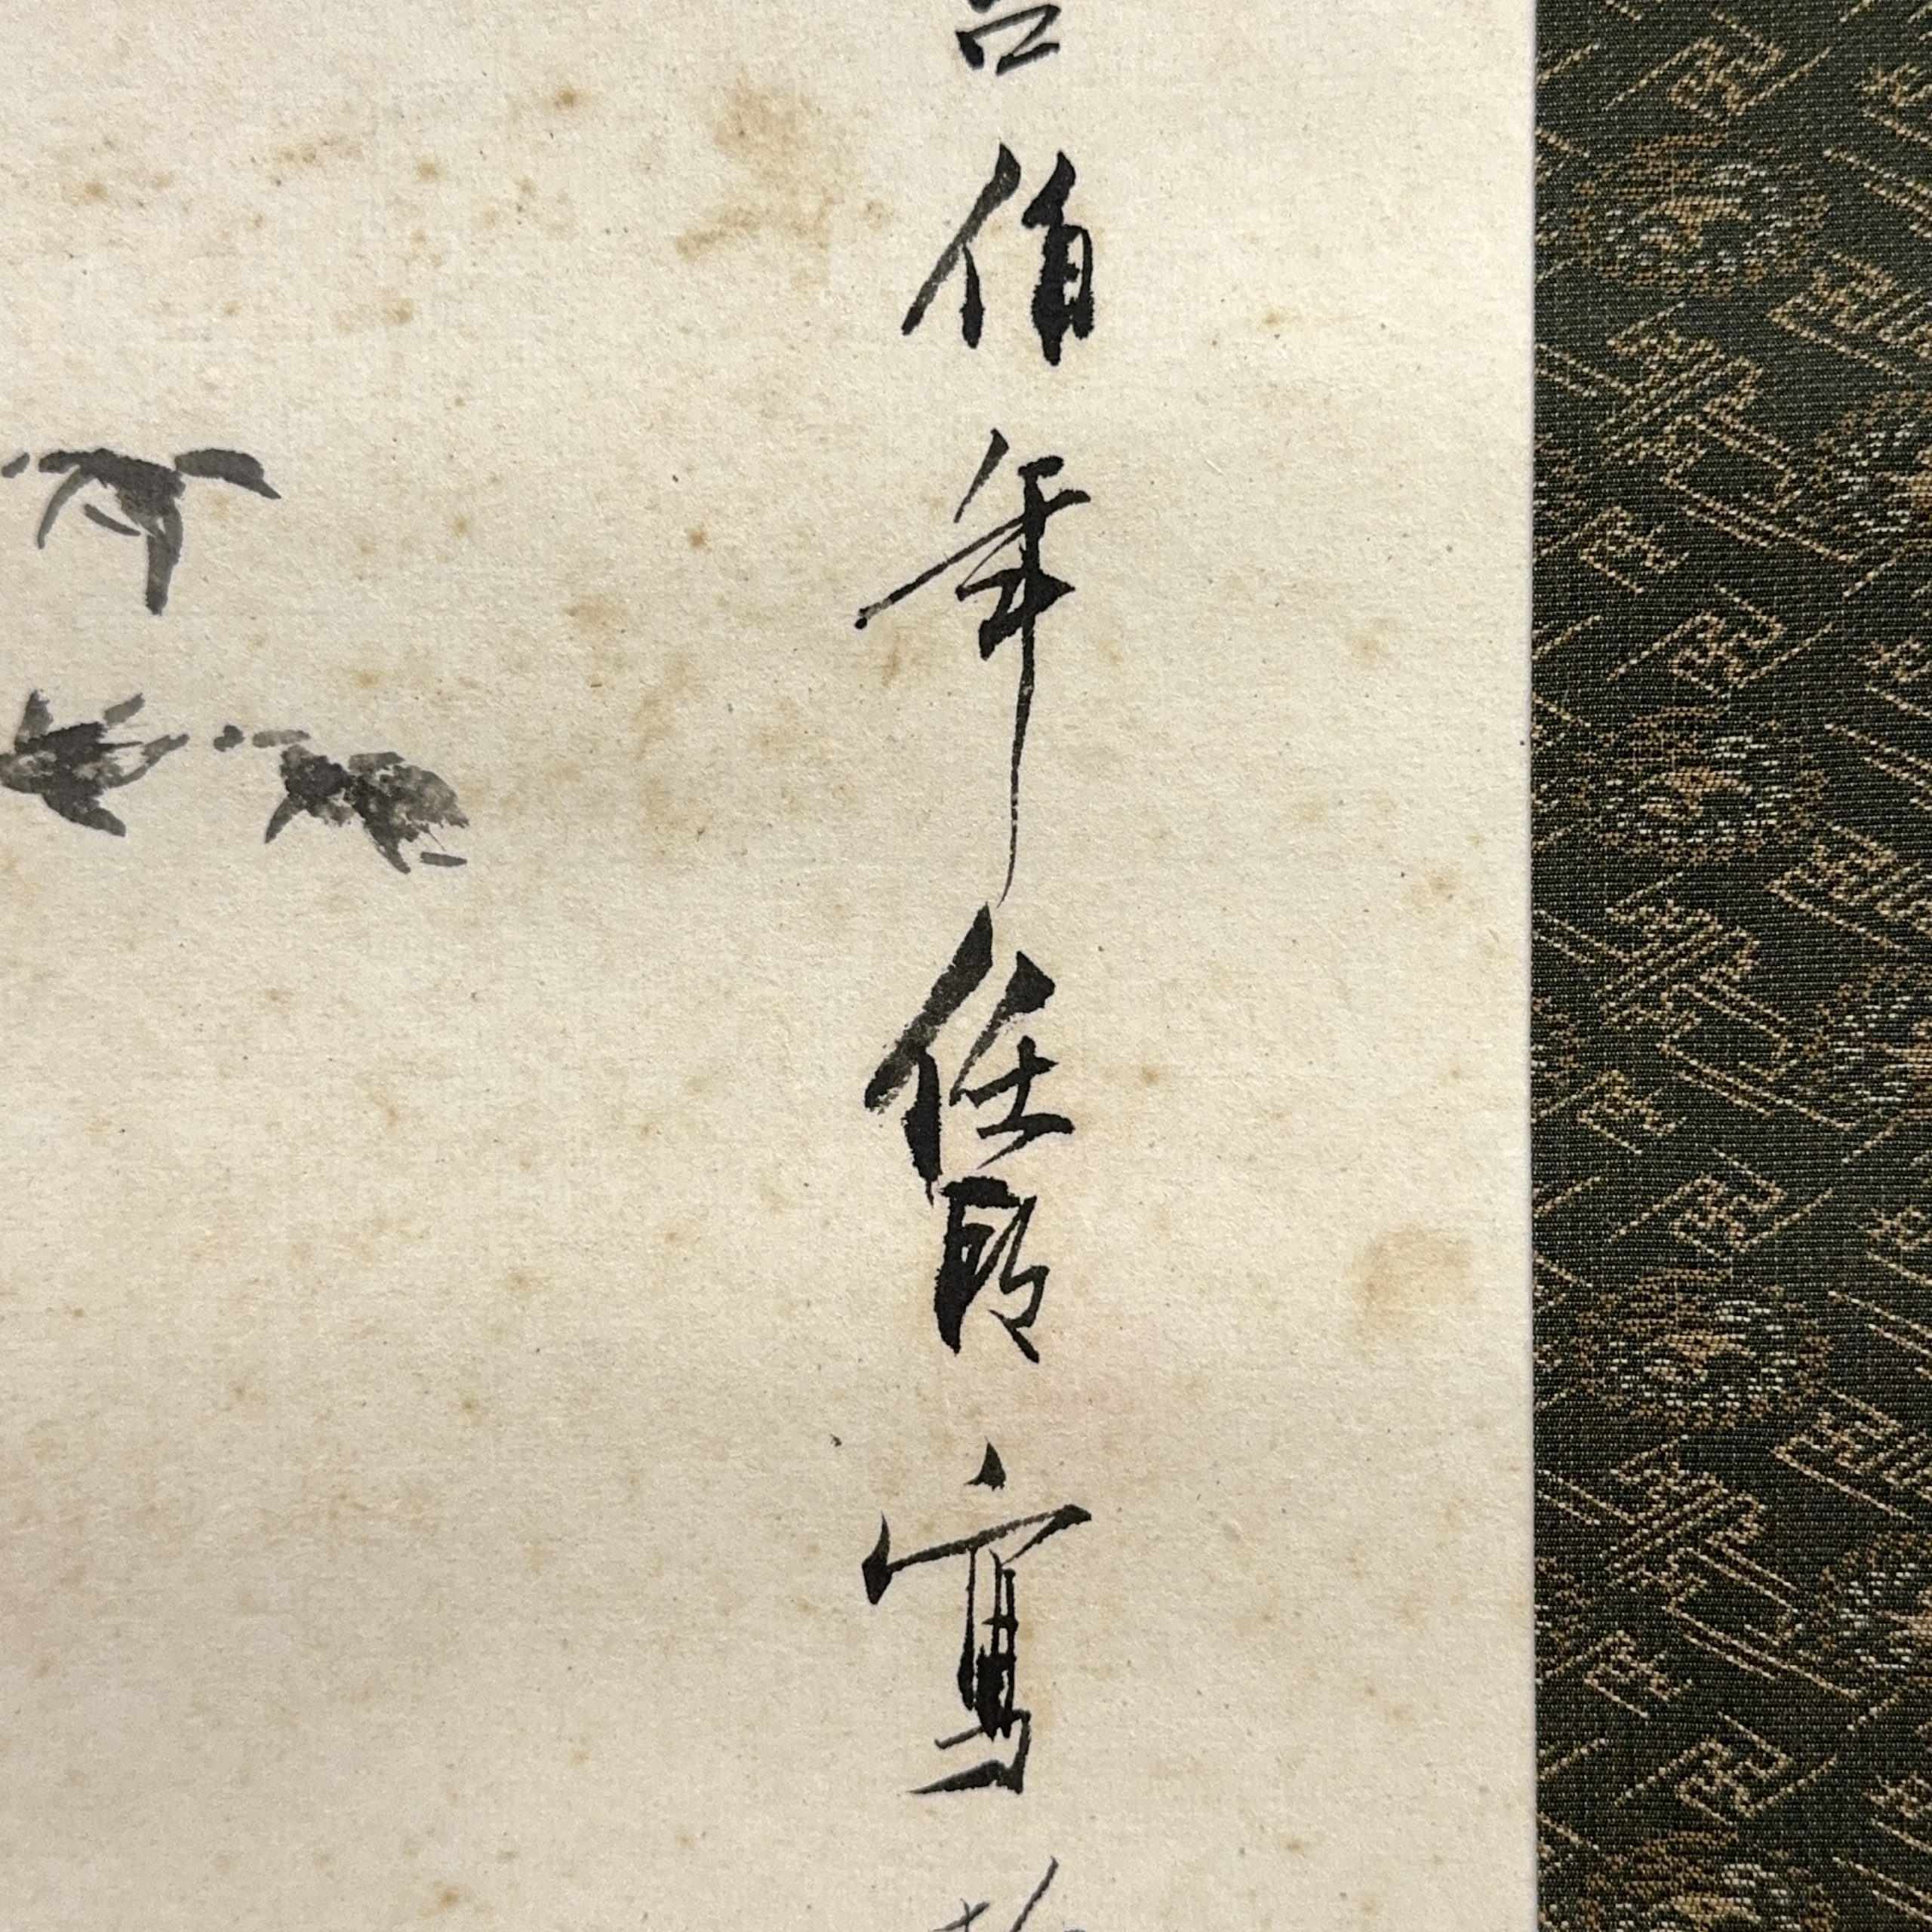 伯年任頤寫